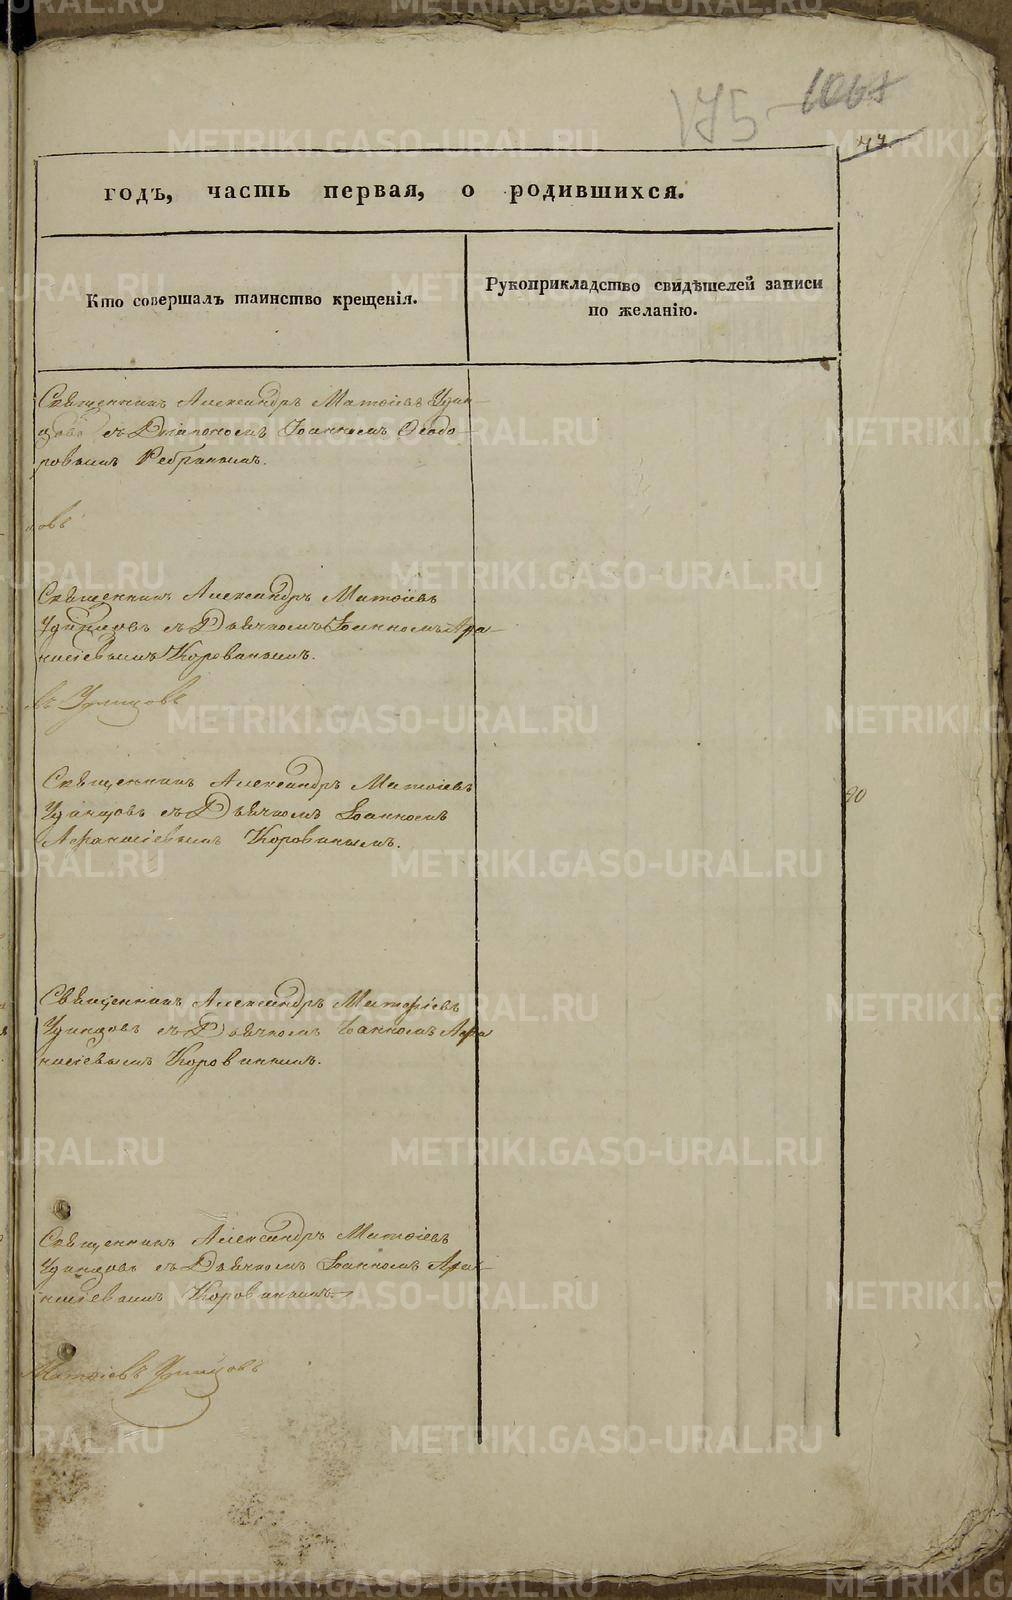 175
1067
47
годъ, часть первая, о родившихся.
Кто совершалъ таинство крещенія.
Рукоприкладство свидѣтелей записи
по желанію.
Священникъ Александръ Матѳіевъ Удин-
цовъ съ Діакономъ Іоанномъ Ѳеодо-
ровымъ Ребринымъ.
овъ
Священникъ Александръ Матѳіевъ
Удинцовъ съ Дьячкомъ Іоанномъ Афа-
насіевымъ Коровинымъ.
въ Удинцовъ
Священникъ Александръ Матѳіевъ
Удинцовъ съ Дьячкомъ Іоанномъ
Афанасіевымъ Коровинымъ.
90
Священникъ Александръ Матфіевъ
Удинцовъ съ Дьячкомъ Іоанномъ Афа
насіевымъ Коровинымъ.
Священникъ Александръ Матѳіевъ
Удинцовъ съ Дьячкомъ Іоанномъ Афа-
насіевымъ Коровинымъ.
Матѳіевъ Удинцовъ
METRIKI.GASO-URAL.RU